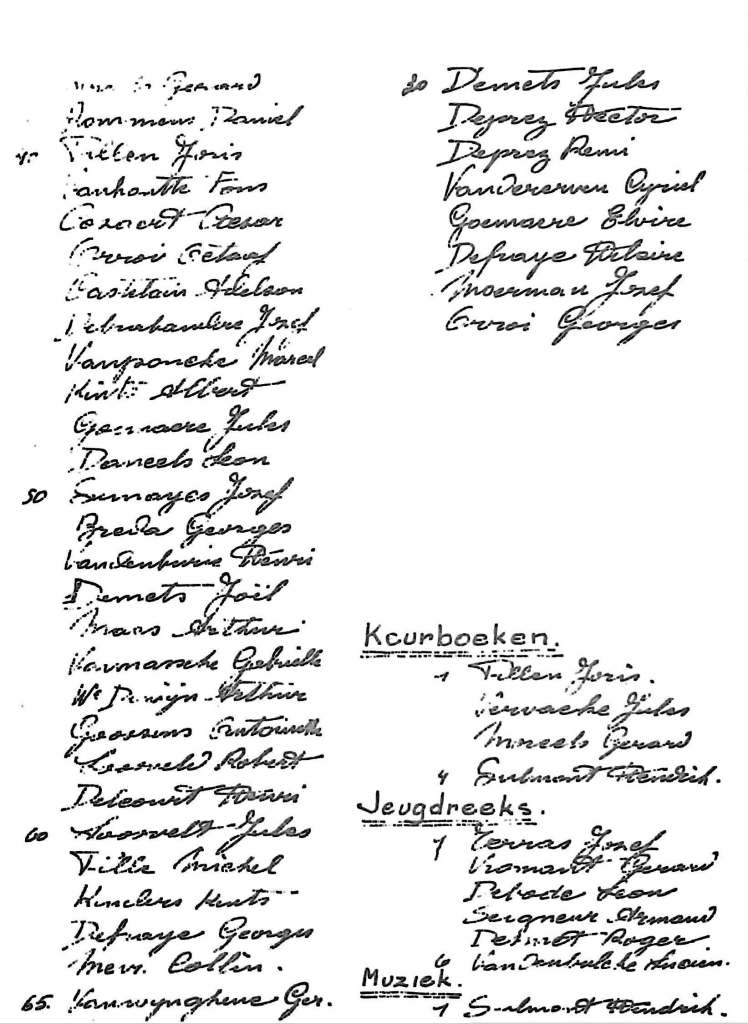 Gerard
Rommens Daniel
Tillen Joris
Vanhoutte Fons
Cozaert Cesar
Orroi Octaaf
Castelain Adelson
Debrabandere Jozef
Vanponcke Marcel
Kints Albert
Goemaere Jules
Daneels Leon
50 Sumayes Jozef
Breda Georges
Vandenburie Henri
Demets Joël
Maes Arthur
Gabrielle
We Dewijn Arthur
Goossens Antoinette
Robert
Delcourt Henri
60 Roosvelt Jules
Tille Michel
Kinders Kints
Defraye Georges
Mevr. Collin.
65. Vanwynghene Ger.
30 Demets Jules
Deprez Hector
Deprez Remi
Cyriel
Goemaere Elvire
Defraye Hilaire
Moerman Jozef
Orroi Georges
Keurboeken.
1 Tillen Joris.
Vervaeke Jules
Moreels Gerard
4 Sulmont Hendrik.
Jeugdreeks.
1 Terras Jozef
Vromant Gerard
Debode Leon
Seigneur Armand
Desmet Roger
6 Vandenbulcke Lucien.
Muziek.
1 Sulmont Hendrik.